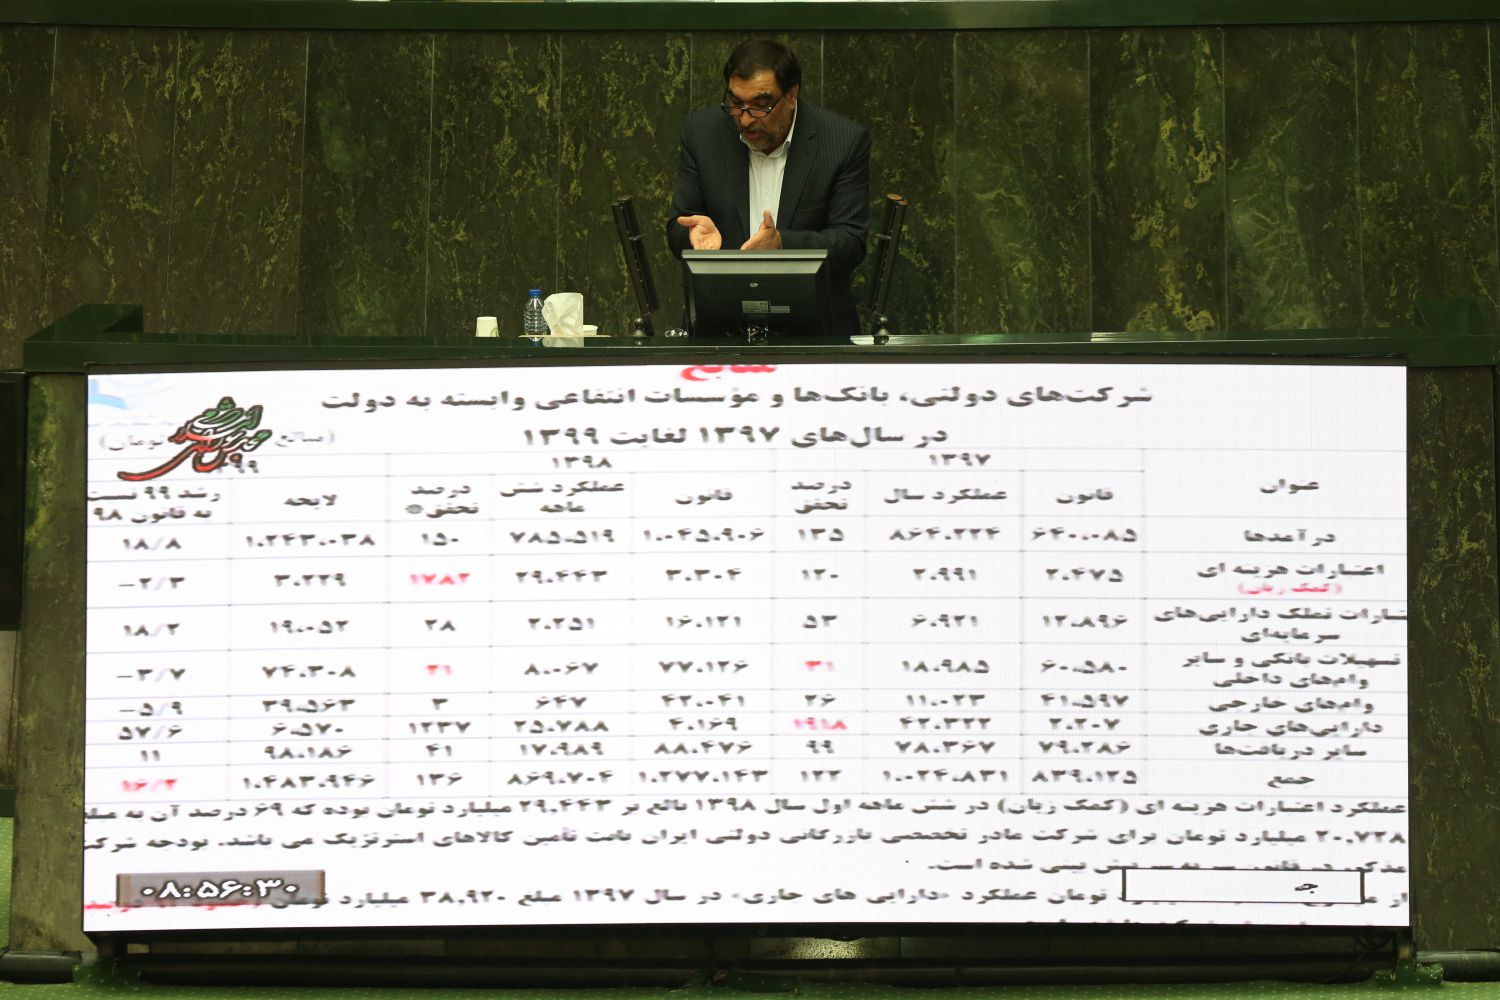 منابع
شرکت‌های دولتی، بانک‌ها و مؤسسات انتفاعی وابسته به دولت
در سال‌های ۱۳۹۷ لغایت ۱۳۹۹
(مبالغ تومان)
۱۳۹۷ ۱۳۹۸
عنوان قانون عملکرد سال درصد تحقق قانون عملکرد شش ماهه درصد تحقق* لایحه رشد ۹۹ نسبت به قانون ۹۸
درآمدها ۶۴۰،۰۸۵ ۸۶۴،۲۲۴ ۱۳۵ ۱،۰۴۵،۹۰۶ ۷۸۵،۵۱۹ ۱۵۰ ۱،۲۴۳،۰۳۸ ۱۸/۸
اعتبارات هزینه ای (کمک زیان) ۲،۴۷۵ ۲،۹۹۱ ۱۲۰ ۳،۳۰۴ ۲۹،۴۴۳ ۱۷۸۲ ۳،۲۲۹ -۲/۳
تملک دارایی‌های سرمایه‌ای ۱۲،۸۹۶ ۶،۹۲۱ ۵۳ ۱۶،۱۲۱ ۲،۲۵۱ ۲۸ ۱۹،۰۵۲ ۱۸/۲
تسهیلات بانکی و سایر وام‌های داخلی ۶۰،۵۸۰ ۱۸،۹۸۵ ۳۱ ۷۷،۱۲۶ ۸،۰۶۷ ۲۱ ۷۴،۳۰۸ -۳/۷
وام‌های خارجی ۴۱،۵۹۷ ۱۱،۰۲۳ ۲۶ ۴۲،۰۴۱ ۶۴۷ ۳ ۳۹،۵۶۳ -۵/۹
دارایی‌های جاری ۲،۲۰۷ ۴۲،۳۲۲ ۱۹۱۸ ۴،۱۶۹ ۲۵،۷۸۸ ۱۲۳۷ ۶،۵۷۰ ۵۷/۶
سایر دریافت‌ها ۷۹،۲۸۶ ۷۸،۳۶۷ ۹۹ ۸۸،۴۷۶ ۱۷،۹۸۹ ۴۱ ۹۸،۱۸۶ ۱۱
جمع ۸۳۹،۱۲۵ ۱،۰۲۴،۸۳۱ ۱۲۲ ۱،۲۷۷،۱۴۳ ۸۶۹،۷۰۴ ۱۳۶ ۱،۴۸۳،۹۴۶ ۱۶/۲
عملکرد اعتبارات هزینه ای (کمک زیان) در شش ماهه اول سال ۱۳۹۸ بالغ بر ۲۹,۴۴۳ میلیارد تومان بوده که ۶۹ درصد آن به
۲۰,۷۲۸ میلیارد تومان برای شرکت مادر تخصصی بازرگانی دولتی ایران بابت تأمین کالاهای استرتژیک می باشد. بودجه
پیش بینی شده است.
تومان عملکرد «دارایی های جاری» در سال ۱۳۹۷ مبلغ ۳۸,۹۲۰ میلیارد تومان
۰۸:۵۶:۳۰